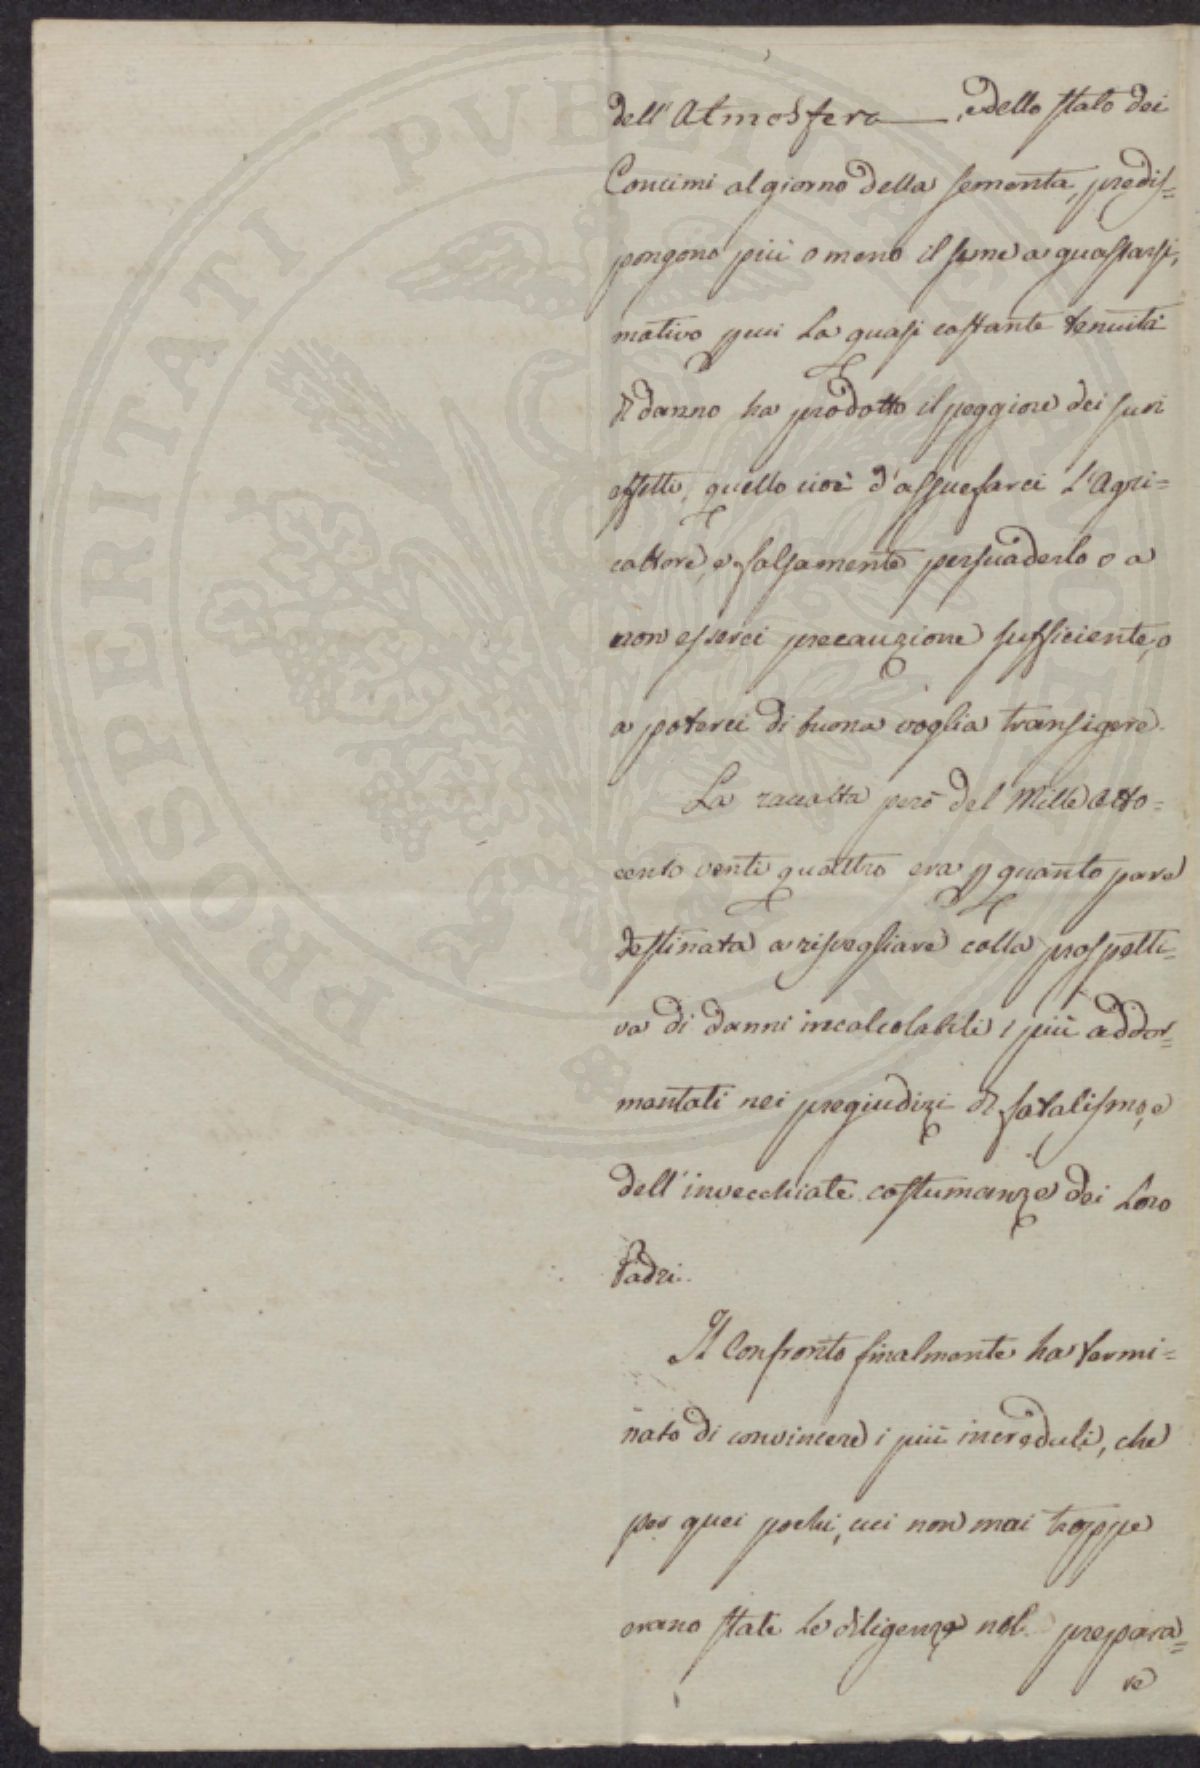 dell'Atmosfera, e dello stato dei
Concimi al giorno della sementa, predis=
pongono più o meno il seme a guastarsi,
motivo per cui La quasi costante tenuità
di danno ha prodotto il peggiore dei suoi
effetti, quello cioè d'assuefarci L'Agri=
coltore, e falsamente persuaderlo o a
non esserci precauzione sufficiente, o
a poterci di buona voglia transigere.
La raccolta però del Mille Otto=
cento venti quattro era p quanto pare
destinata a risvegliare colla prospetti=
va di danni incalcolabili i più addor=
mentati nei pregiudizi di fatalismo, e
dell'invecchiate costumanze dei Loro
Padri.
Il Confronto finalmente ha termi=
nato di convincere i più increduli, che
per quei pochi, cui non mai troppe
erano state Le diligenze nel prepara=
re
PROSPERITATI PVBLICAE